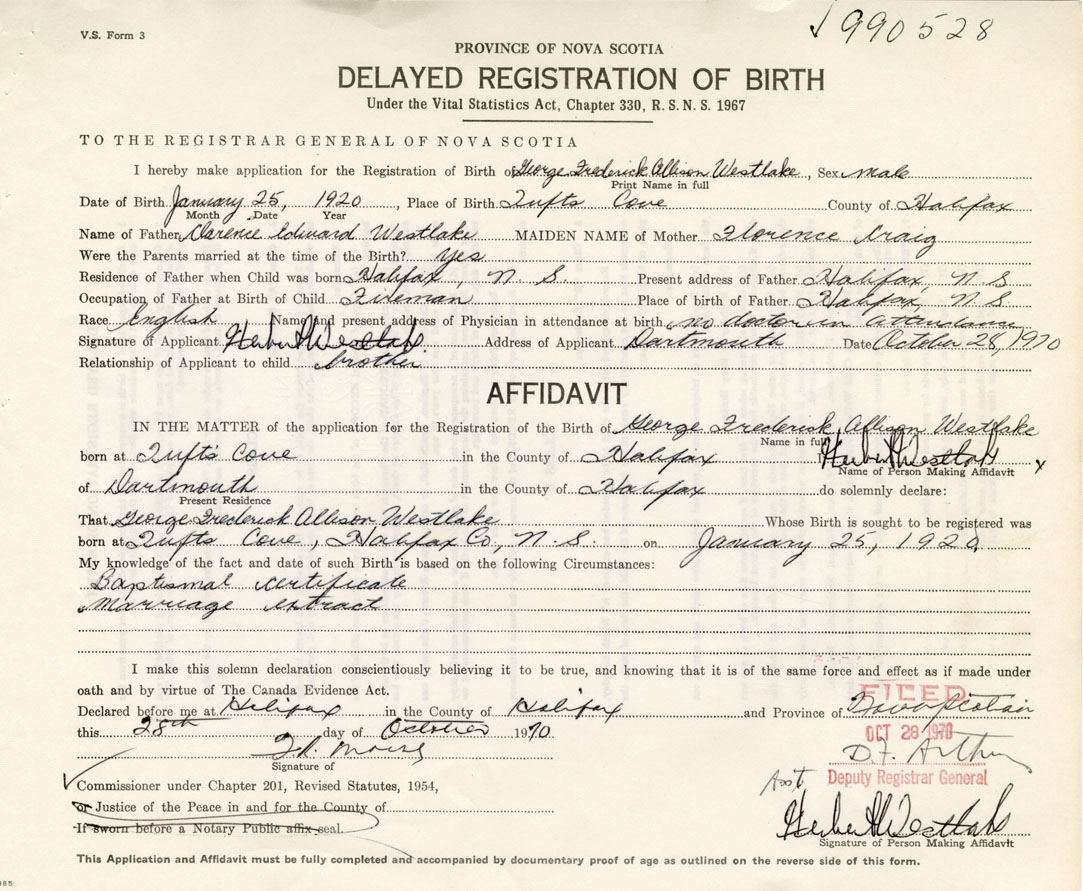 V.S. Form 3
√990528
PROVINCE OF NOVA SCOTIA
DELAYED REGISTRATION OF BIRTH
Under the Vital Statistics Act, Chapter 330, R. S. N. S. 1967
TO THE REGISTRAR GENERAL OF NOVA SCOTIA
I hereby make application for the Registration of Birth of George Frederick Allison Westlake, Sex male
Print Name in full
Date of Birth January 25, 1920, Place of Birth Tufts Cove County of Halifax
Month Date Year
Name of Father Clarence Edward Westlake MAIDEN NAME of Mother Florence Craig
Were the Parents married at the time of the Birth? Yes
Residence of Father when Child was born Halifax, N. S. Present address of Father Halifax, N S
Occupation of Father at Birth of Child Fireman Place of birth of Father Halifax, N S
Race English Name and present address of Physician in attendance at birth no doctor in attendance
Signature of Applicant Herbert H Westlake Address of Applicant Dartmouth Date October 28, 1970
Relationship of Applicant to child brother
AFFIDAVIT
IN THE MATTER of the application for the Registration of the Birth of George Frederick Allison Westlake
Name in full
born at Tuft's Cove in the County of Halifax Herbert H Westlake x
Name of Person Making Affidavit
of Dartmouth in the County of Halifax do solemnly declare:
Present Residence
That George Frederick Allison Westlake Whose Birth is sought to be registered was
born at Tufts Cove, Halifax Co., N. S. on January 25, 1920
My knowledge of the fact and date of such Birth is based on the following Circumstances:
Baptismal certificate
Marriage extract
I make this solemn declaration conscientiously believing it to be true, and knowing that it is of the same force and effect as if made under
oath and by virtue of The Canada Evidence Act.
FILED
Declared before me at Halifax in the County of Halifax and Province of Nova Scotia
this 28th day of October 1970
OCT 28 1970
D. F. Arthur
Signature of
Asst Deputy Registrar General
Commissioner under Chapter 201, Revised Statutes, 1954,
or Justice of the Peace in and for the County of
If sworn before a Notary Public affix seal.
Herbert H Westlake
Signature of Person Making Affidavit
This Application and Affidavit must be fully completed and accompanied by documentary proof of age as outlined on the reverse side of this form.